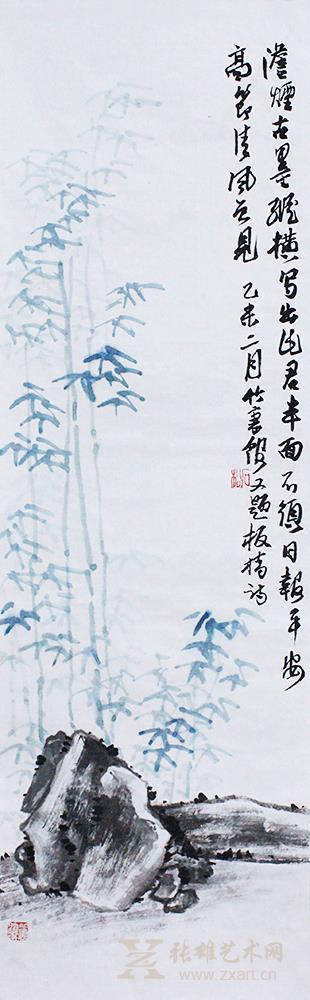 澹煙古墨縱横写出此君半面不須日報平安
高節清风曾見 乙未二月竹裏館又題板橋詩
张雄艺术网
www.zxart.cn